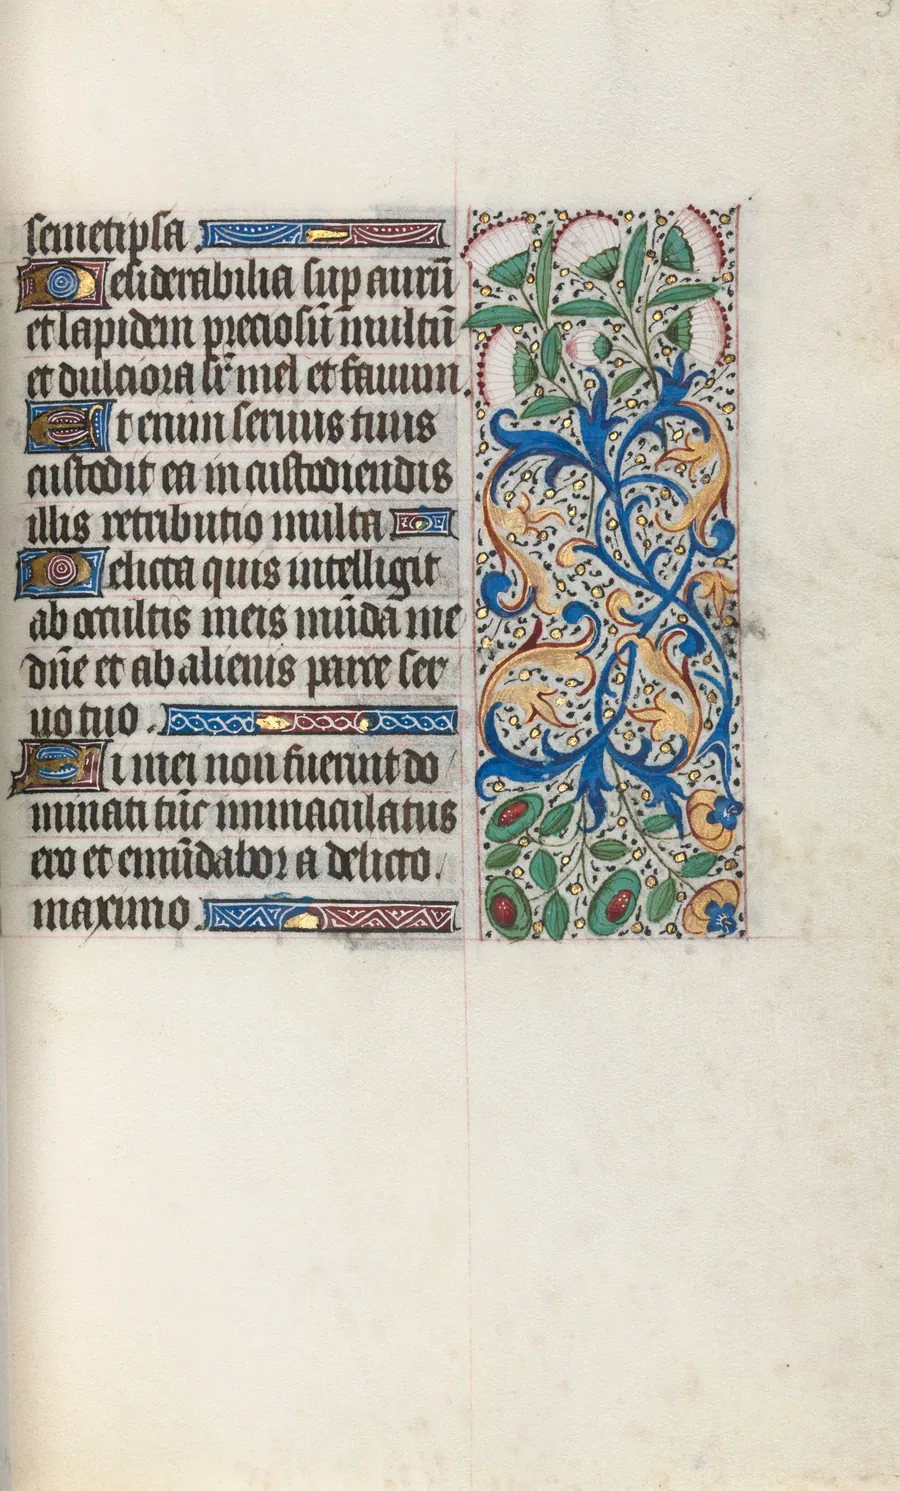 semetipsa.
Desiderabilia sup aurū
et lapidem preciosū multū
et dulciora sr̄ mel et fauum.
Etenim seruus tuus
custodit ea in custodiendis
illis retributio multa
Delicta quis intelligit
ab occultis meis mūda me
dn̄e et ab alienis parce ser
uo tuo.
Si mei non fuerint do
minati tūc immaculatus
ero et emūdabor a delicto.
maximo